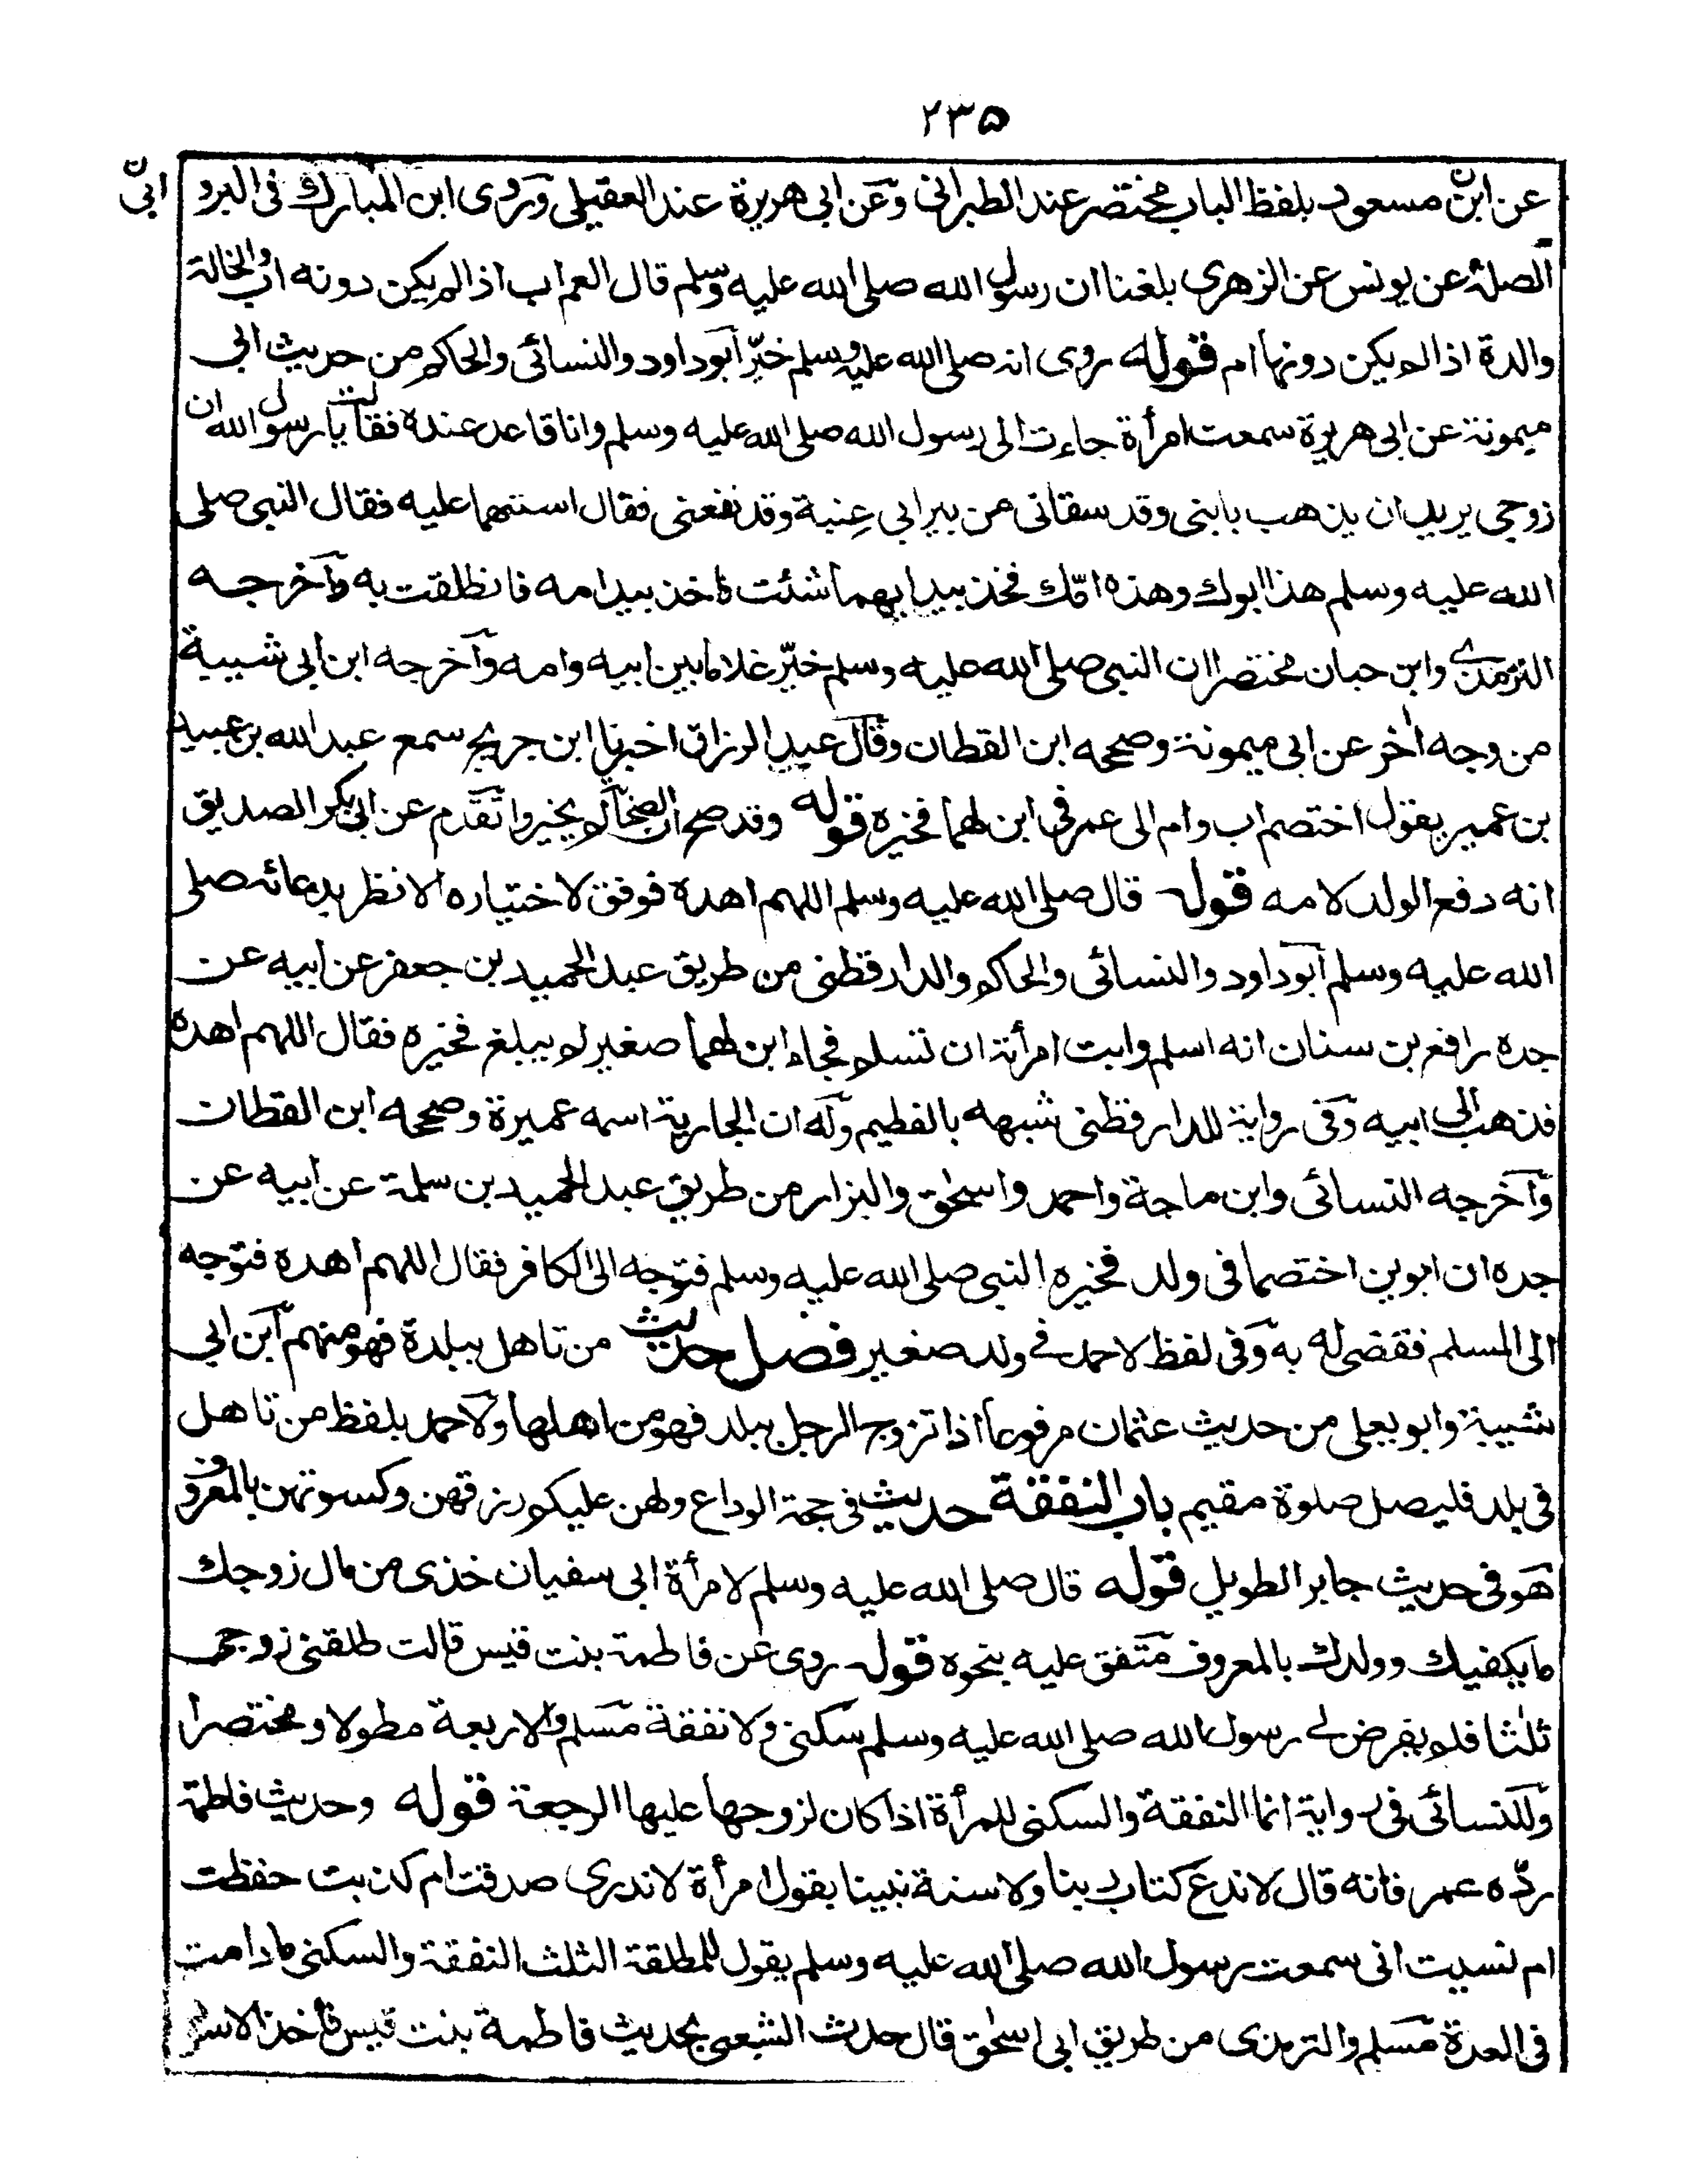 ۲۳۵
عن ابن مسعود بلفظ الباب مختصر عند الطبرانى وعن ابى هريرة عند العقيلى وروى ابن المبارك فى البرو
الصلة عن يونس عن الزهرى بلغنا ان رسول الله صلى الله عليه وسلم قال العم اب اذا لم يكن دونه اب والخالة
والدة اذا لم يكن دونها ام قوله روى انه صلى الله عليه وسلم خيّر أبو داود والنسائى والحاكم من حديث ابى
ميمونة عن ابى هريرة سمعت امرأة جاءت الى رسول الله صلى الله عليه وسلم وانا قاعد عنده فقالت يا رسول الله ان
زوجى يريد ان يذهب بابنى وقد سقانى من بير ابى عنبة وقد نفعنى فقال استهما عليه فقال النبى صلى
الله عليه وسلم هذا ابوك وهذه امّك فخذ بيد ايهما شئت فاخذ بيد امه فانطلقت به وآخرجه
الترمذى وابن حبان مختصرا ان النبى صلى الله عليه وسلم خيّر غلاما بين ابيه وامه وآخرجه ابن ابى شيبة
من وجه اخر عن ابى ميمونة وصححه ابن القطان وقال عبد الرزاق اخبرنا ابن جريج سمع عبد الله بن عبيد
بن عمير يقول اختصم اب وام الى عمر فى ابن لهما فخيره قوله وقد صح ان الصحابة لم يخيروا تقدم عن ابى بكر الصديق
انه دفع الولد لامه قوله قال صلى الله عليه وسلم اللهم اهده فوفق لاختياره الانظر بدعائه صلى
الله عليه وسلم أبو داود والنسائى والحاكم والدارقطنى من طريق عبد الحميد بن جعفر عن ابيه عن
جده رافع بن سنان انه اسلم وابت امرأته ان تسلم فجاء ابن لهما صغير لم يبلغ فخيره فقال اللهم اهده
فذهب الى ابيه وفى رواية للدارقطنى شبهه بالفطيم وله ان الجارية اسمه عميرة وصححه ابن القطان
وآخرجه النسائى وابن ماجة واحمد واسحٰق والبزار من طريق عبد الحميد بن سلمة عن ابيه عن
جده ان ابوين اختصما فى ولد فخيره النبى صلى الله عليه وسلم فتوجه الى الكافر فقال اللهم اهده فتوجه
الى المسلم فقضى له به وفى لفظ لاحمد فى ولد صغير فصل حديث من تاهل ببلدة فهو منهم ابن ابى
شيبة وابو يعلى من حديث عثمان مرفوعا اذا تزوج الرجل ببلد فهو من اهلها ولاحمد بلفظ من تاهل
فى بلد فليصل صلوة مقيم باب النفقة حديث فى حجة الوداع ولهن عليكم رزقهن وكسوتهن بالمعروف
هو فى حديث جابر الطويل قوله قال صلى الله عليه وسلم لامرأة ابى سفيان خذى من مال زوجك
ما يكفيك وولدك بالمعروف متفق عليه بنحوه قوله روى عن فاطمة بنت قيس قالت طلقنى زوجى
ثلٰثا فلم يفرض لى رسول الله صلى الله عليه وسلم سكنى ولا نفقة مسلم والاربعة مطولا ومختصرا
وللنسائى فى رواية انما النفقة والسكنى للمرأة اذا كان لزوجها عليها الرجعة قوله وحديث فاطمة
ردّه عمر فانه قال لا ندع كتاب ربنا ولا سنة نبينا بقول امرأة لا ندرى صدقت ام كذبت حفظت
ام نسيت انى سمعت رسول الله صلى الله عليه وسلم يقول للمطلقة الثلث النفقة والسكنى ما دامت
فى العدة مسلم والترمذى من طريق ابى اسحٰق قال حدث الشعبى بحديث فاطمة بنت قيس فاخذ الاسو